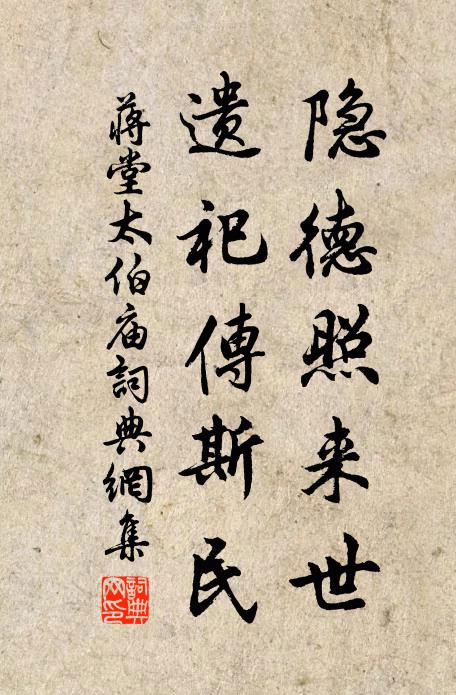 隐德照来世
遗祀傳斯民
蒋堂太伯庙詞典網集
詞典
网印